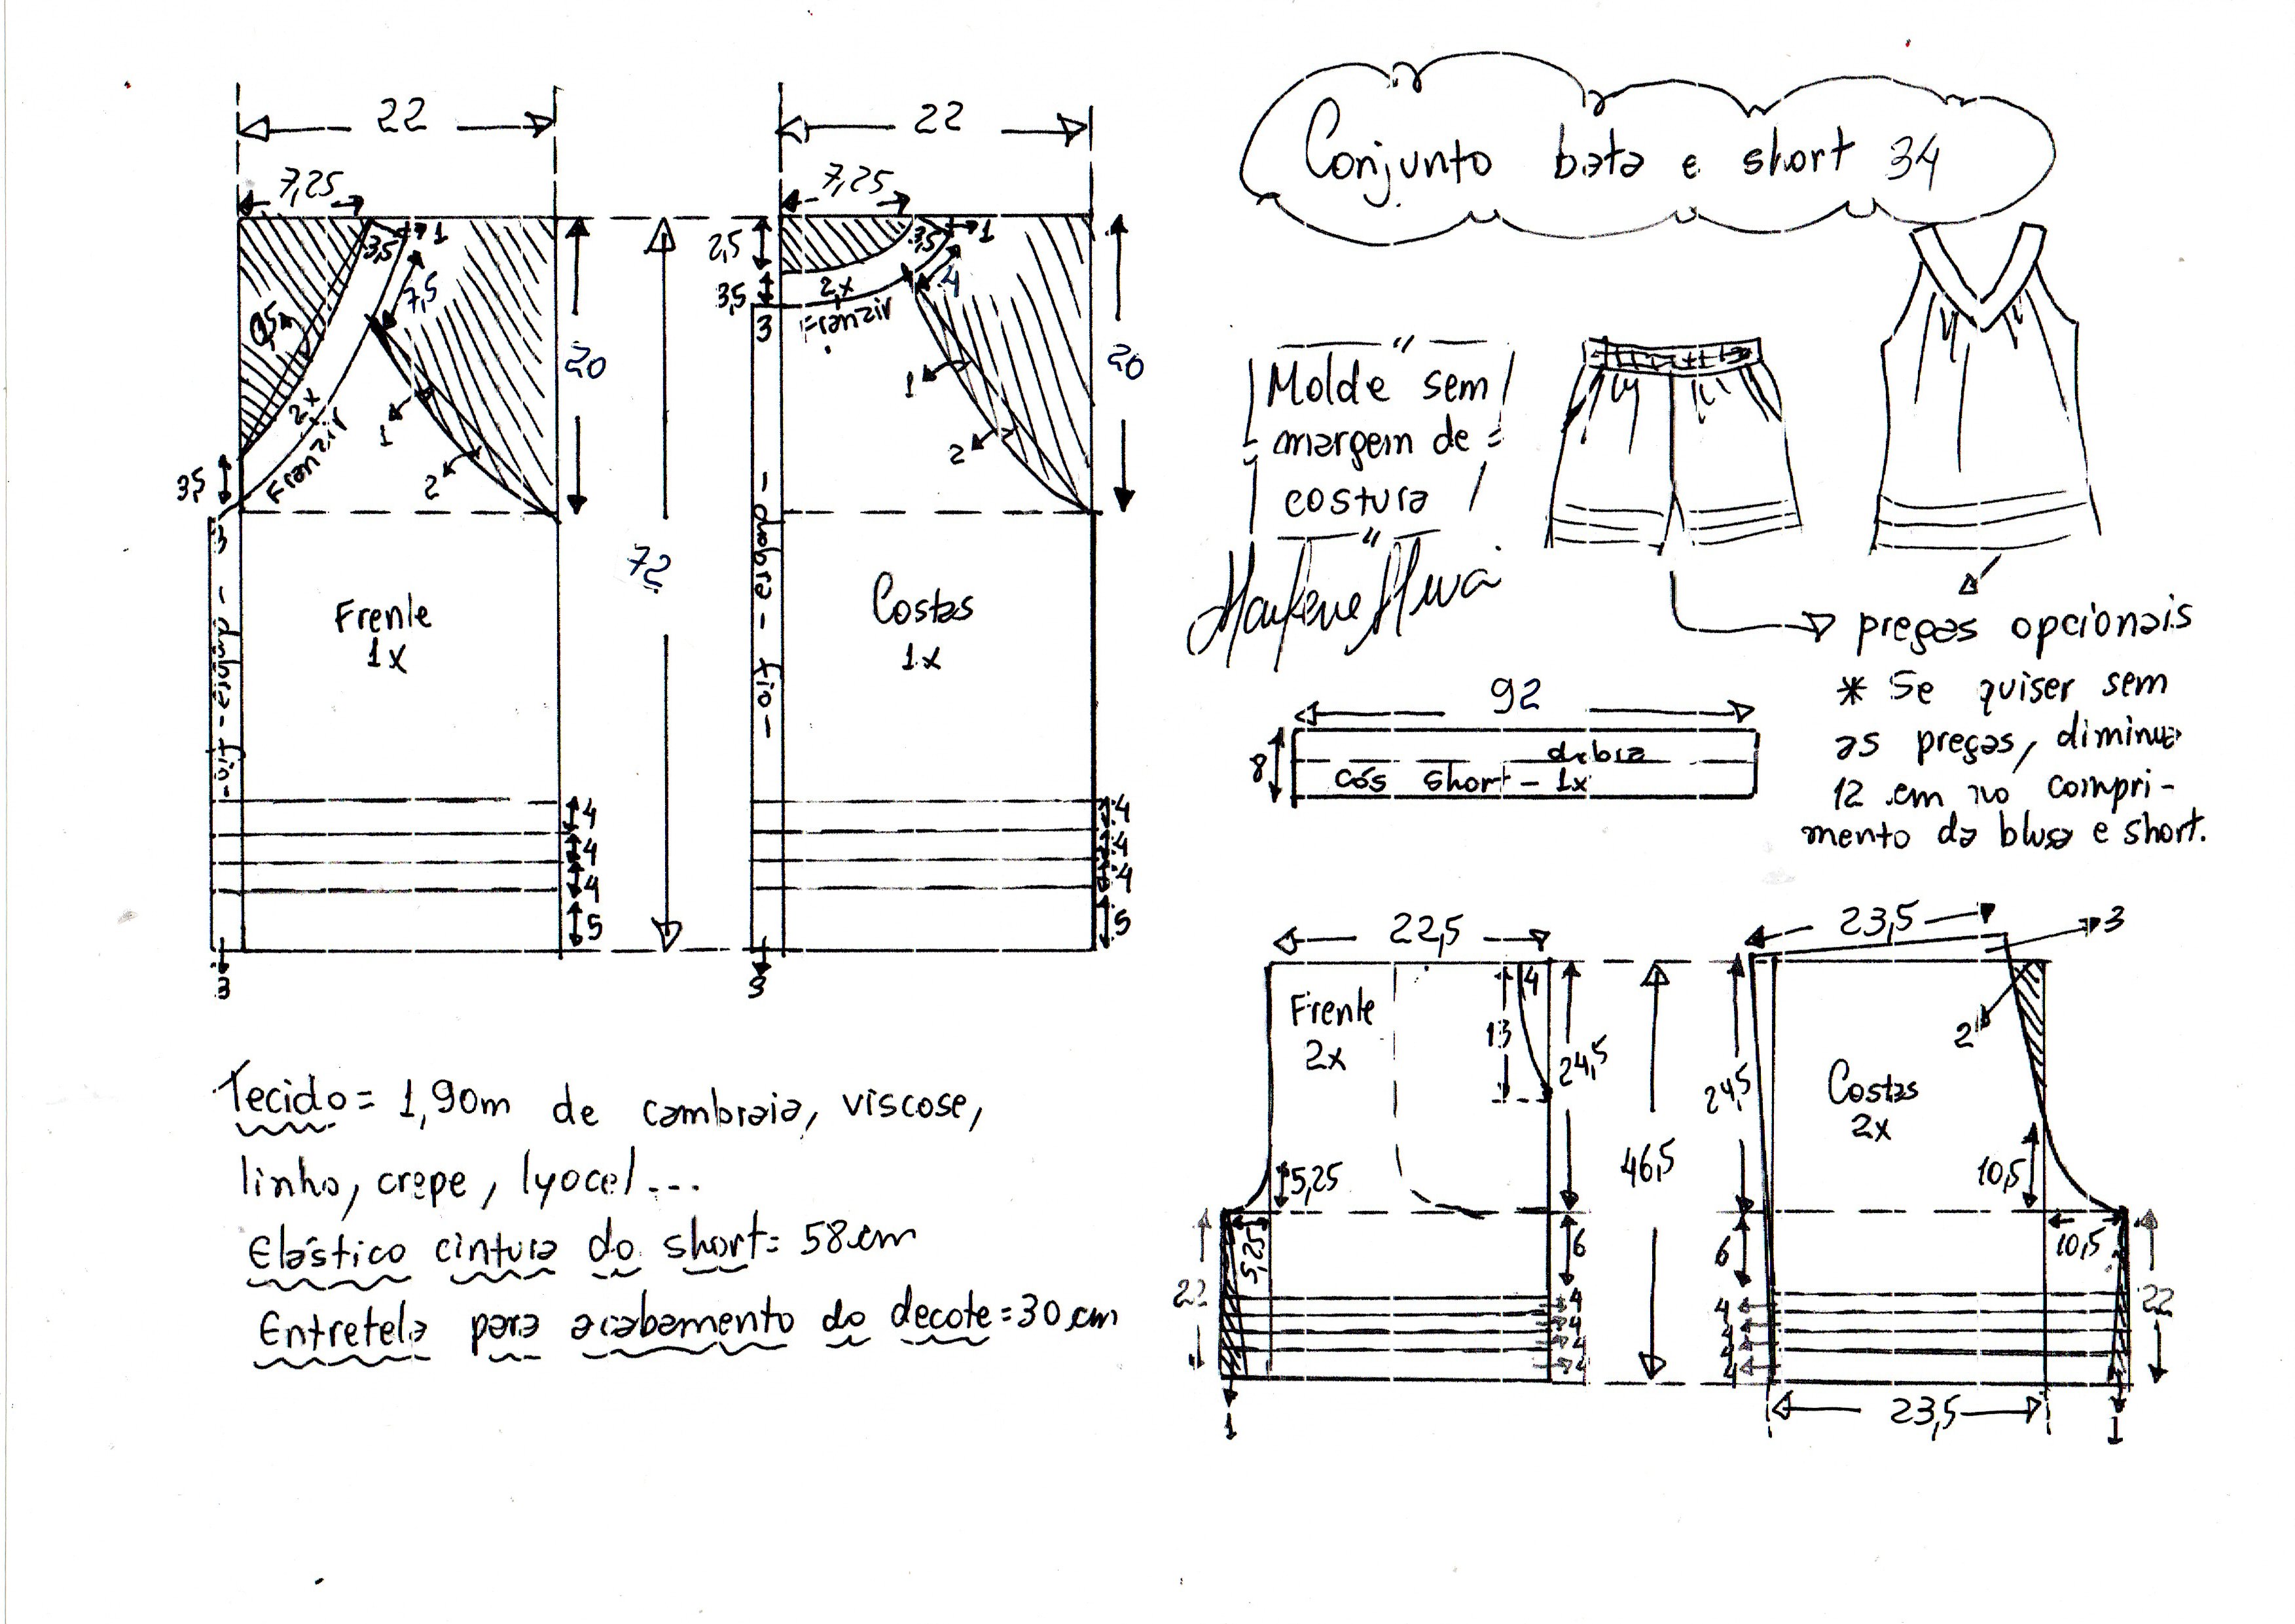 Conjunto bata e short 34
22
7,25
3,5
1
7,5
0,5
2x
Franzir
1
2
20
3,5
3
Frente
1x
4
4
4
5
3
72
22
7,25
2,5
3,5
3,5
1
4
2x
Franzir
3
1
2
20
- fio - dobra -
Costas
1x
4
4
4
5
3
"
Molde sem
margem de
costura
"
pregas opcionais
* Se quiser sem
as pregas, diminua
12 cm no compri-
mento da blusa e short.
92
8
dobra
cós short - 1x
Tecido = 1,90m de cambraia, viscose,
linho, crepe, lyocel...
Elástico cintura do short= 58cm
Entretela para acabamento do decote=30cm
22,5
Frente
2x
4
13
24,5
5,25
5,25
22
6
4
4
4
4
1
46,5
23,5
3
2
24,5
Costas
2x
10,5
10,5
6
4
4
4
4
22
23,5
1